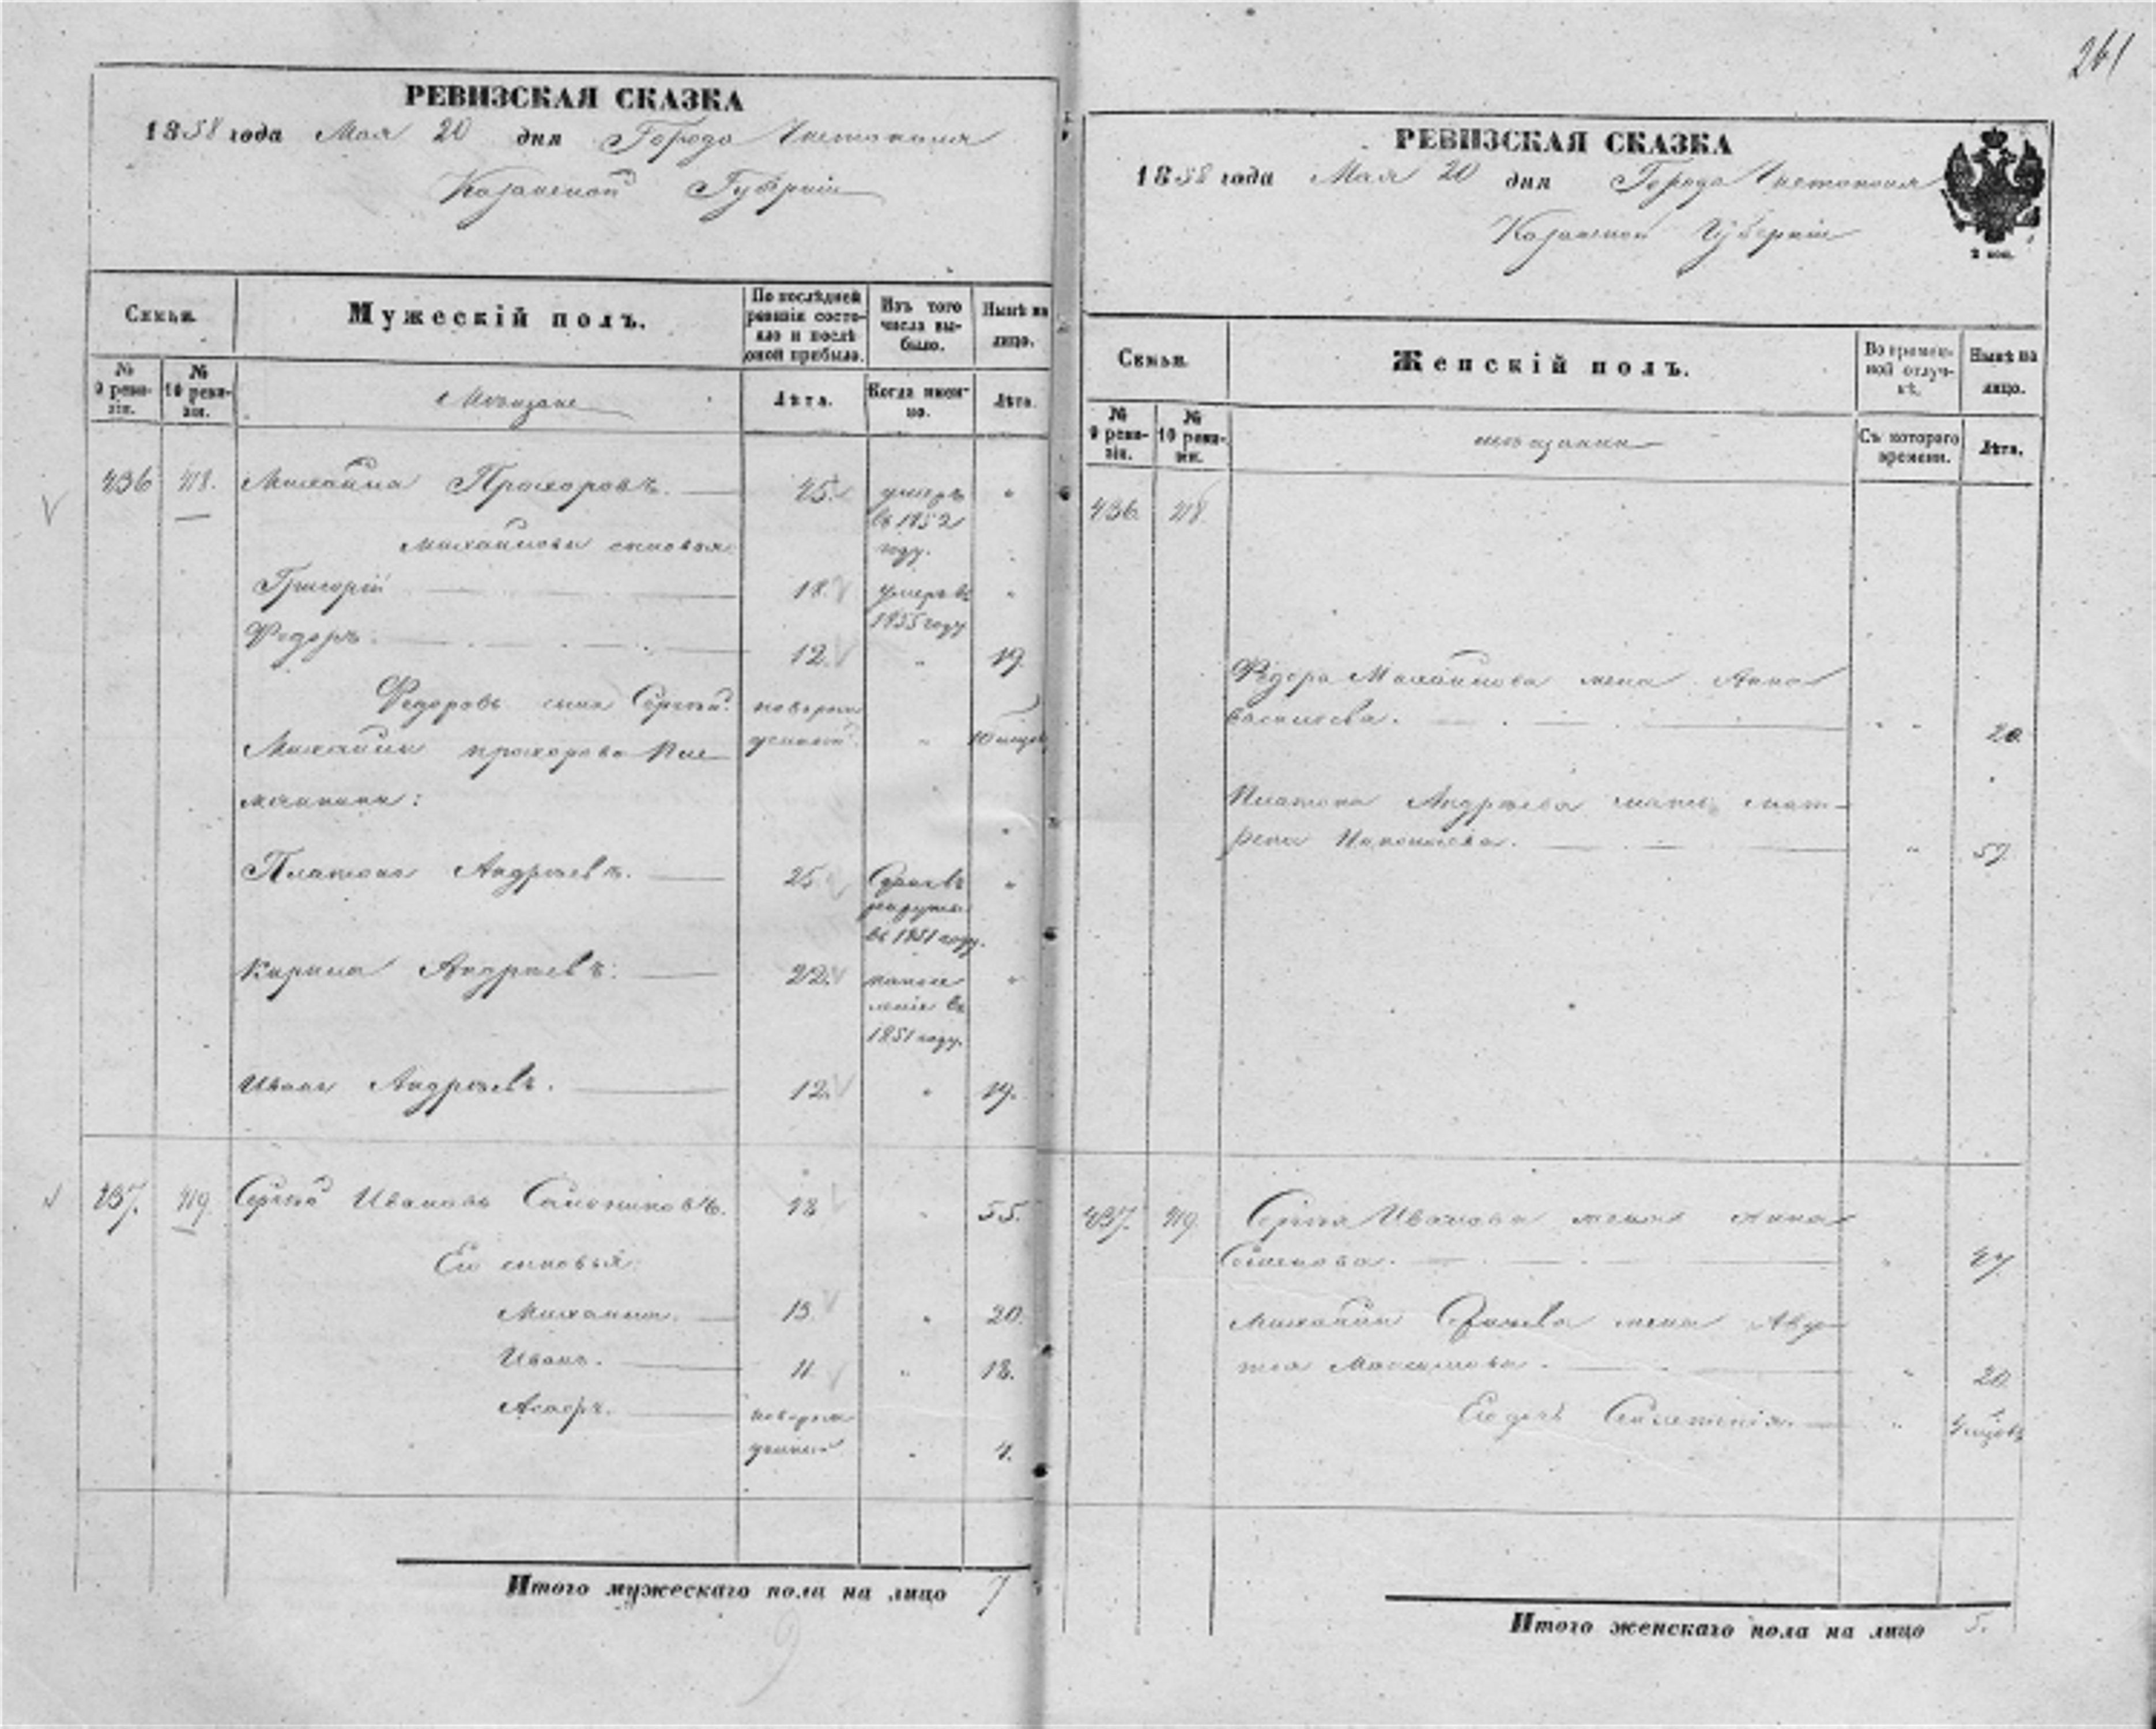 261
РЕВИЗСКАЯ СКАЗКА
1858 года Мая 20 дня Города Чистополя
Казанской Губерніи
Семьи.
Мужескій полъ.
По послѣдней ревизіи состояло и послѣ оной прибыло.
Изъ того числа выбыло.
Нынѣ на лицо.
№ 9 ревизіи.
№ 10 ревизіи.
Мѣщане
Лѣта.
Когда именно.
Лѣта.
436 418. Михайла Прохоровъ. 45. умеръ въ 1852 году. "
Михайловы сыновья
Григорій 18. умеръ въ 1855 году "
Федоръ. 12. " 19.
Федоровъ сынъ Сергѣй. новорожденный. " 10 мѣсяц
Михайлы Прохорова пле
мянники:
Платонъ Андреевъ. 25. Сданъ въ рекруты въ 1851 году. "
Кирила Андреевъ. 22. 1851 году. "
Иванъ Андреевъ. 12. " 19.
437. 419. Сергѣй Ивановъ 48 " 55.
Его сыновья:
Михайла. 13. " 20.
Иванъ. 11. " 18.
новорожденный " 4.
Итого мужескаго пола на лицо 7
9
РЕВИЗСКАЯ СКАЗКА
1858 года Мая 20 дня Города Чистополя
Казанской Губерніи
2 коп.
Семьи.
Женскій полъ.
Во временной отлучкѣ.
Нынѣ на лицо.
№ 9 ревизіи.
№ 10 ревизіи.
мѣщанки
Съ котораго времени.
Лѣта.
436. 418
Федора Михайлова жена Анна
Васильева. " " 20.
Платона Андреева мать Мат-
рена " 57.
437. 419. Сергѣя Иванова жена Анна
Семенова. " 47.
Михайлы Сергѣева жена Авдо
тья Максимова. " 20
Ея дочь " 4 мѣсяц
Итого женскаго пола на лицо 5.